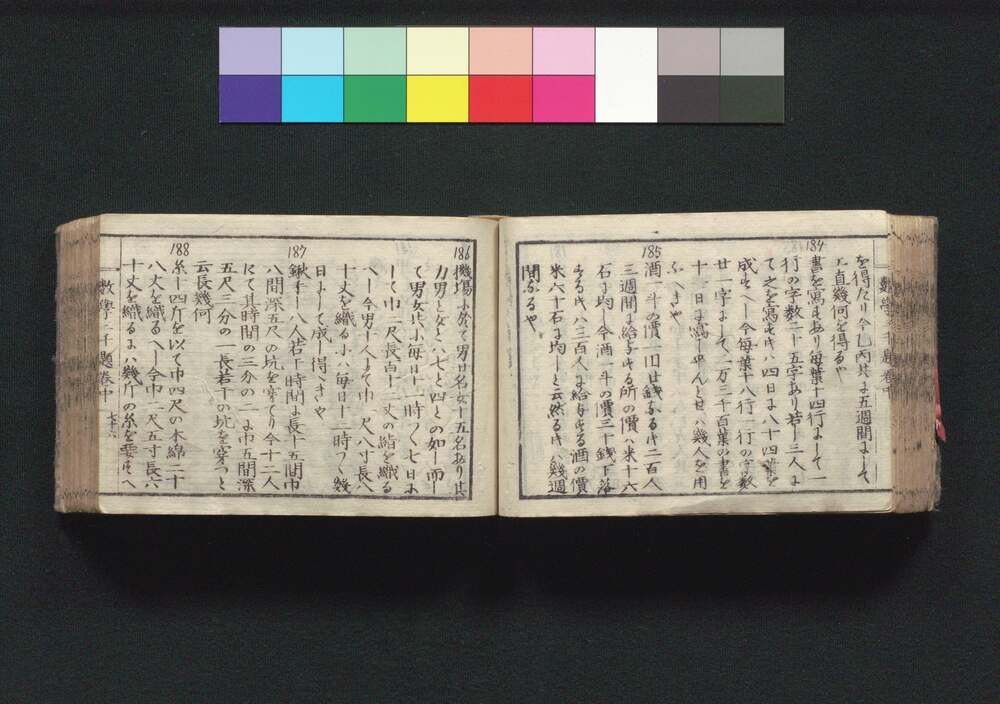 數學二千題巻中
を得たり今乙丙共に五週間にして
工直幾何を得るや
184
書を寫すあり毎葉十四行にして一
行の字数二十五字あり若し三人に
て之を寫すヰハ四日に八十四葉を
成すへし今毎葉十八行一行の字数
廿一字にして二万三千百葉の書を
十一日に寫し畢んとせハ幾人を用
ふへきや
185
酒一斗の價一円廿銭なるヰ二百人
三週間に給与する所の價ハ米十六
石に均し今酒一斗の價三十銭下落
するヰハ三百人に給与する酒の價
米六十石に均しと云然るヰハ幾週
間なるや
186
機場に於て男廿名女十五名あり其
力男と女とハ七と四との如し而し
て男女共に毎日十一時つゝ七日に
して巾二尺長百十二丈の絹を織る
へし今男十人にて巾一尺八寸長八
十丈を織るにハ毎日十二時つゝ幾
日にして成し得へきや
187
鍬手十八人若干時間に長十五間巾
八間深五尺の坑を穿てり今十二人
にて其時間の三分の二に巾五間深
五尺三分の一長若干の坑を穿つと
云長幾何
188
糸十四斤を以て巾四尺の木綿二十
八丈を織るへし今巾一尺五寸長六
十丈を織るにハ幾斤の糸を要すへ
數學二千題巻中 六十六